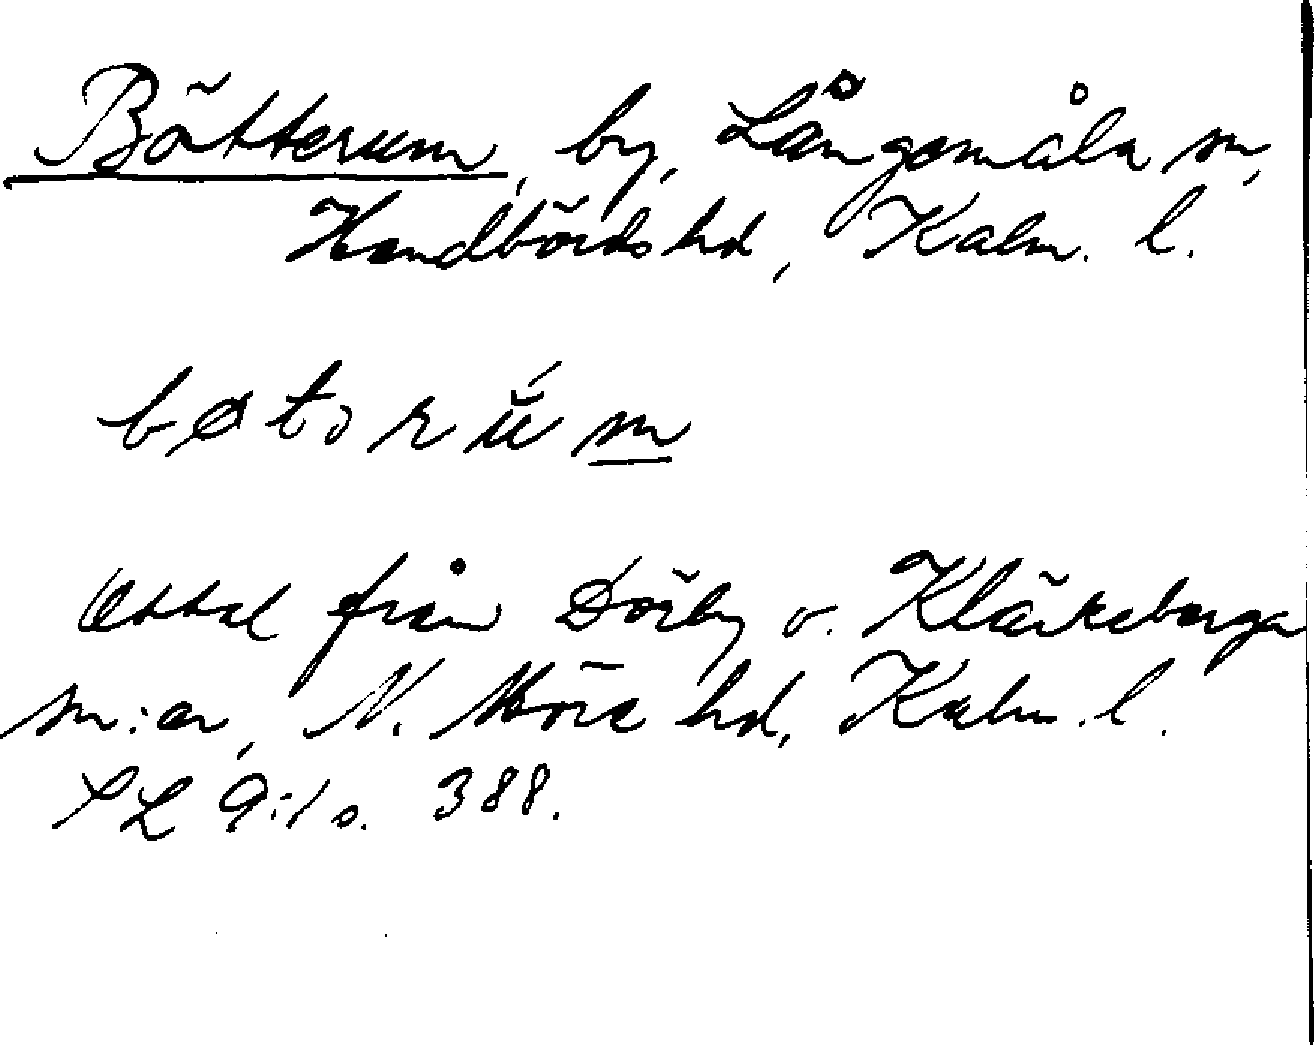 Bötterum, by, Långemåla sn,
Handbörds hd, Kalm. l.
Uttal från Dörby o. Kläckeberga
sn:ar, N. Möre hd, Kalm. l.
SL 9:1 s. 388.